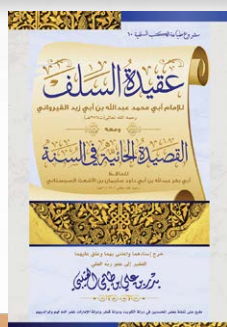 مشروع طباعة الكتب السلفية ١٠
عقيدة السلف
للإمام أبي محمد عبد الله بن أبي زيد القيرواني
ومعه
القصيدة الحائية في السنة
للحافظ
أبي بكر عبد الله بن أبي داود سليمان بن الأشعث السجستاني
خرج إسنادهما واعتنى بهما وعلق عليهما
الفقير إلى عفو ربه العلي
بدر بن علي بن طامي العتيبي